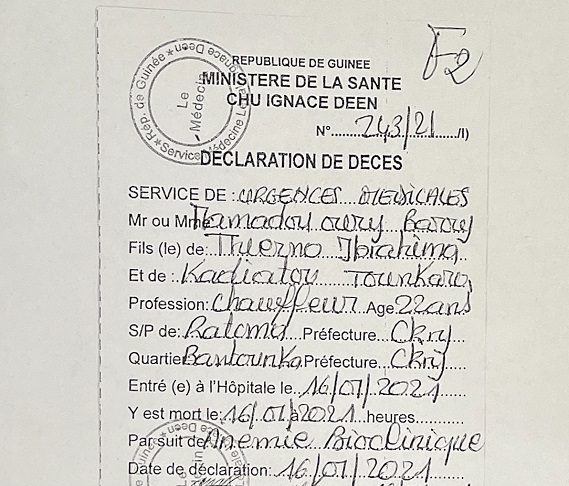 F2
REPUBLIQUE DE GUINEE
MINISTERE DE LA SANTE
CHU IGNACE DEEN
N°......243/21....../I)
DECLARATION DE DECES
Rép. de Guinée * Service Médecine
Le Médecin
SERVICE DE : URGENCES MEDICALES
Mr ou Mme Mamadou oury Barry
Fils (le) de: Thierno Ibrahima
Et de : Kadiatou Tounkara
Profession: Chauffeur Age 22ans
S/P de: Ratoma Préfecture Ckry
Quartier Bantounka Préfecture Ckry
Entré (e) à l'Hôpitale le 16/01/2021
Y est mort le: 16/01/2021 à heures
Par suit de Anemie Bioclinique
Date de déclaration: 16/01/2021